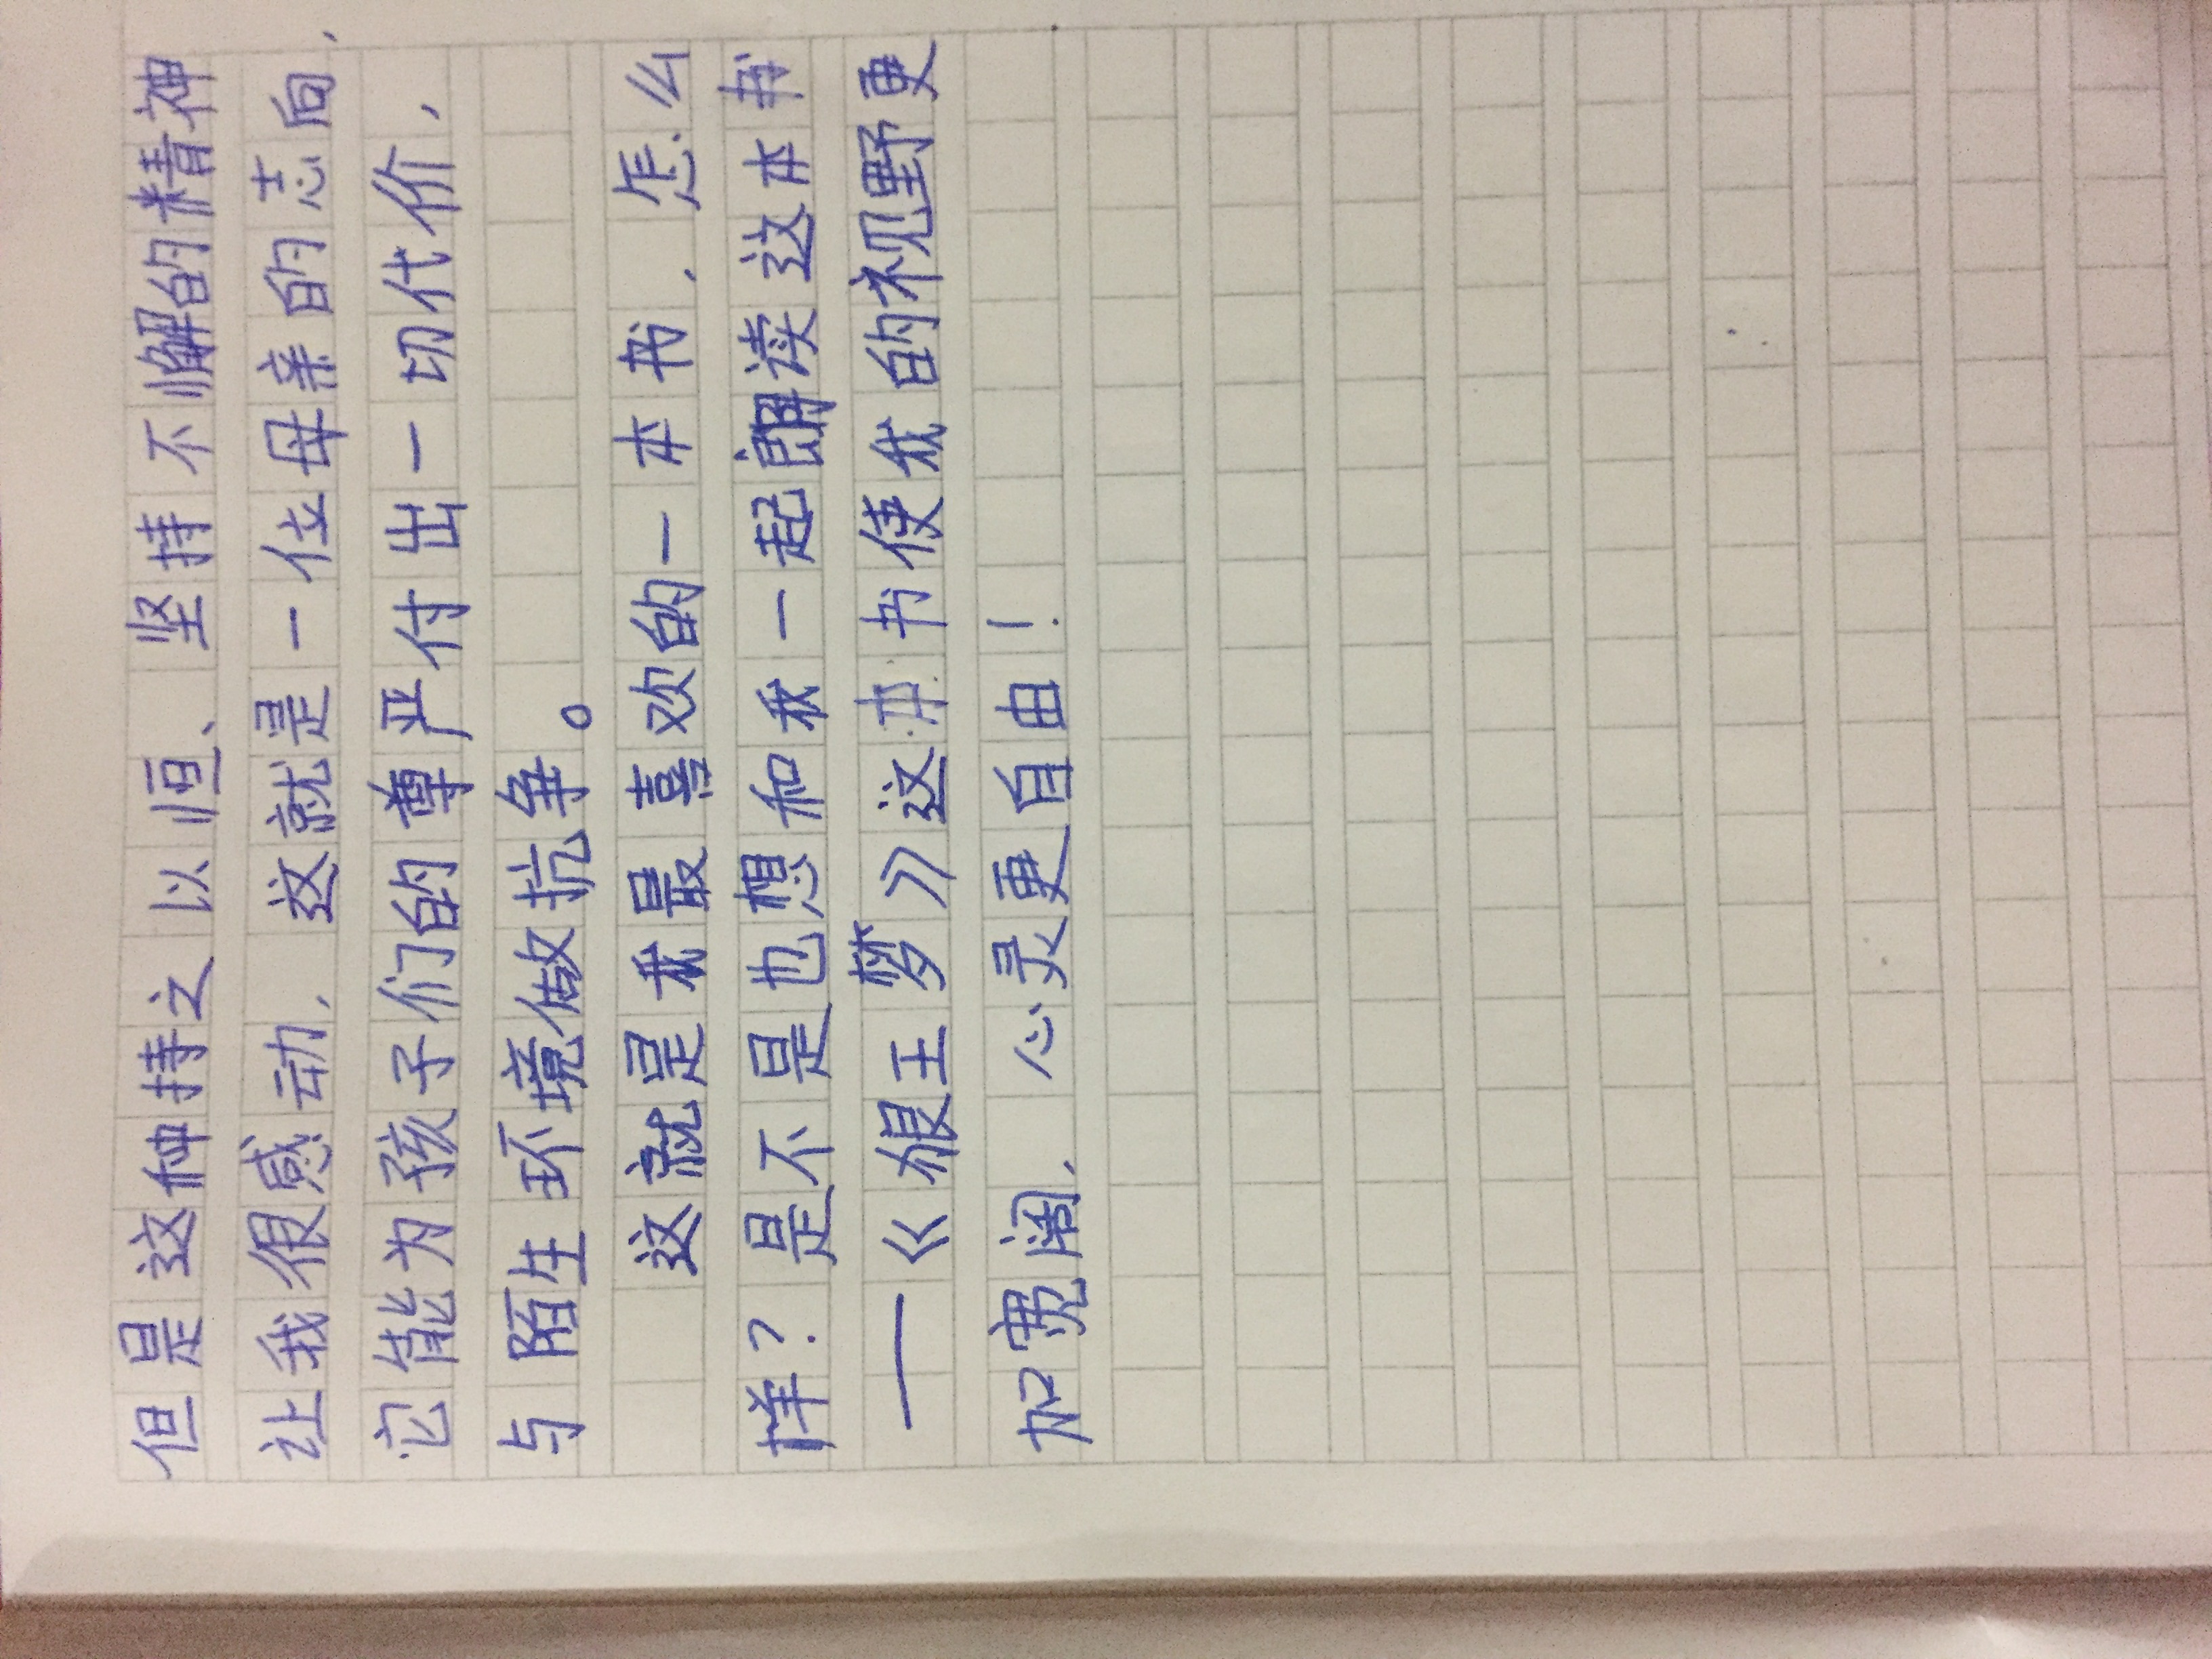 但是这种持之以恒、坚持不懈的精神
让我很感动，这就是一位母亲的志向，
它能为孩子们的尊严付出一切代价，
与陌生环境做抗争。
这就是我最喜欢的一本书，怎么
样？是不是也想和我一起解读这本书
——《狼王梦》这本书使我的视野更
加宽阔，心灵更自由！